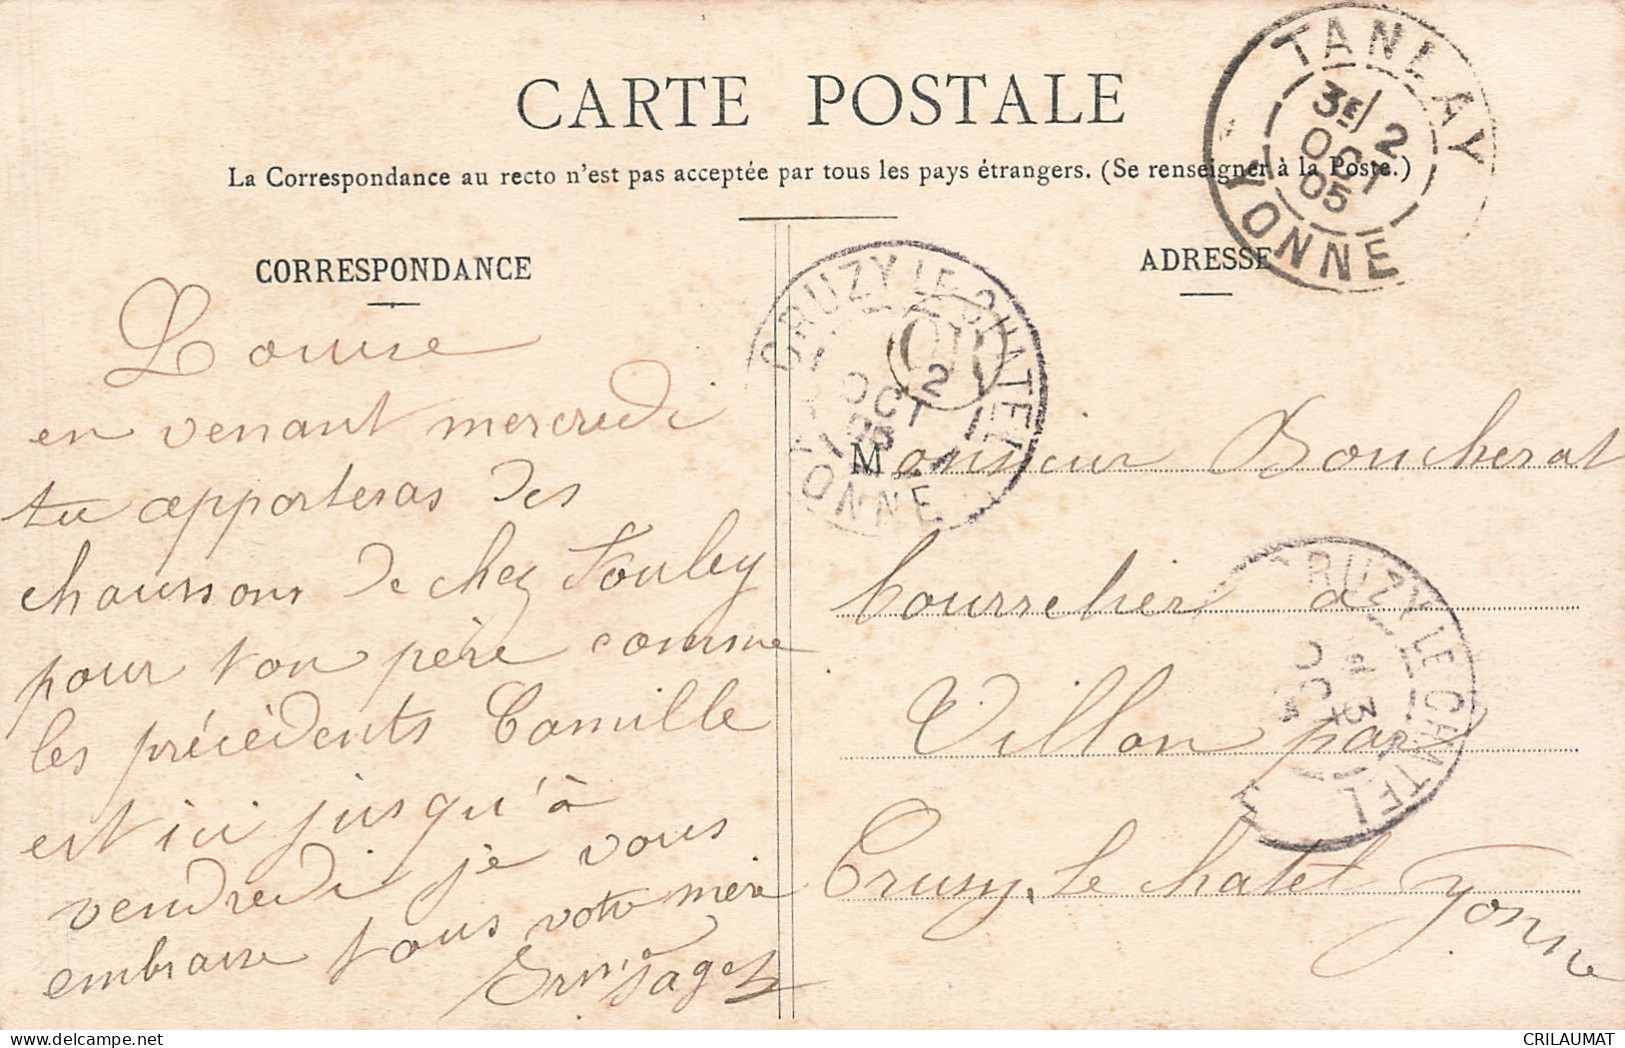 CARTE POSTALE
La Correspondance au recto n'est pas acceptée par tous les pays étrangers. (Se renseigner à la Poste.)
CORRESPONDANCE
Louise
en venant mercredi
tu apporteras des
chaussons de chez
pour ton père comme
les précédents Camille
est ici jusqu'à
vendredi je vous
embrasse tous votre mère
ADRESSE
Monsieur Boucherat
bourrelier à
Villon par
Cruzy le chatel Yonne
TANLAY
3E/ 2
OCT
05
YONNE
CRUZY LE CHATEL
2
OCT
05
YONNE
OR
CRUZY LE CHATEL
CRILAUMAT